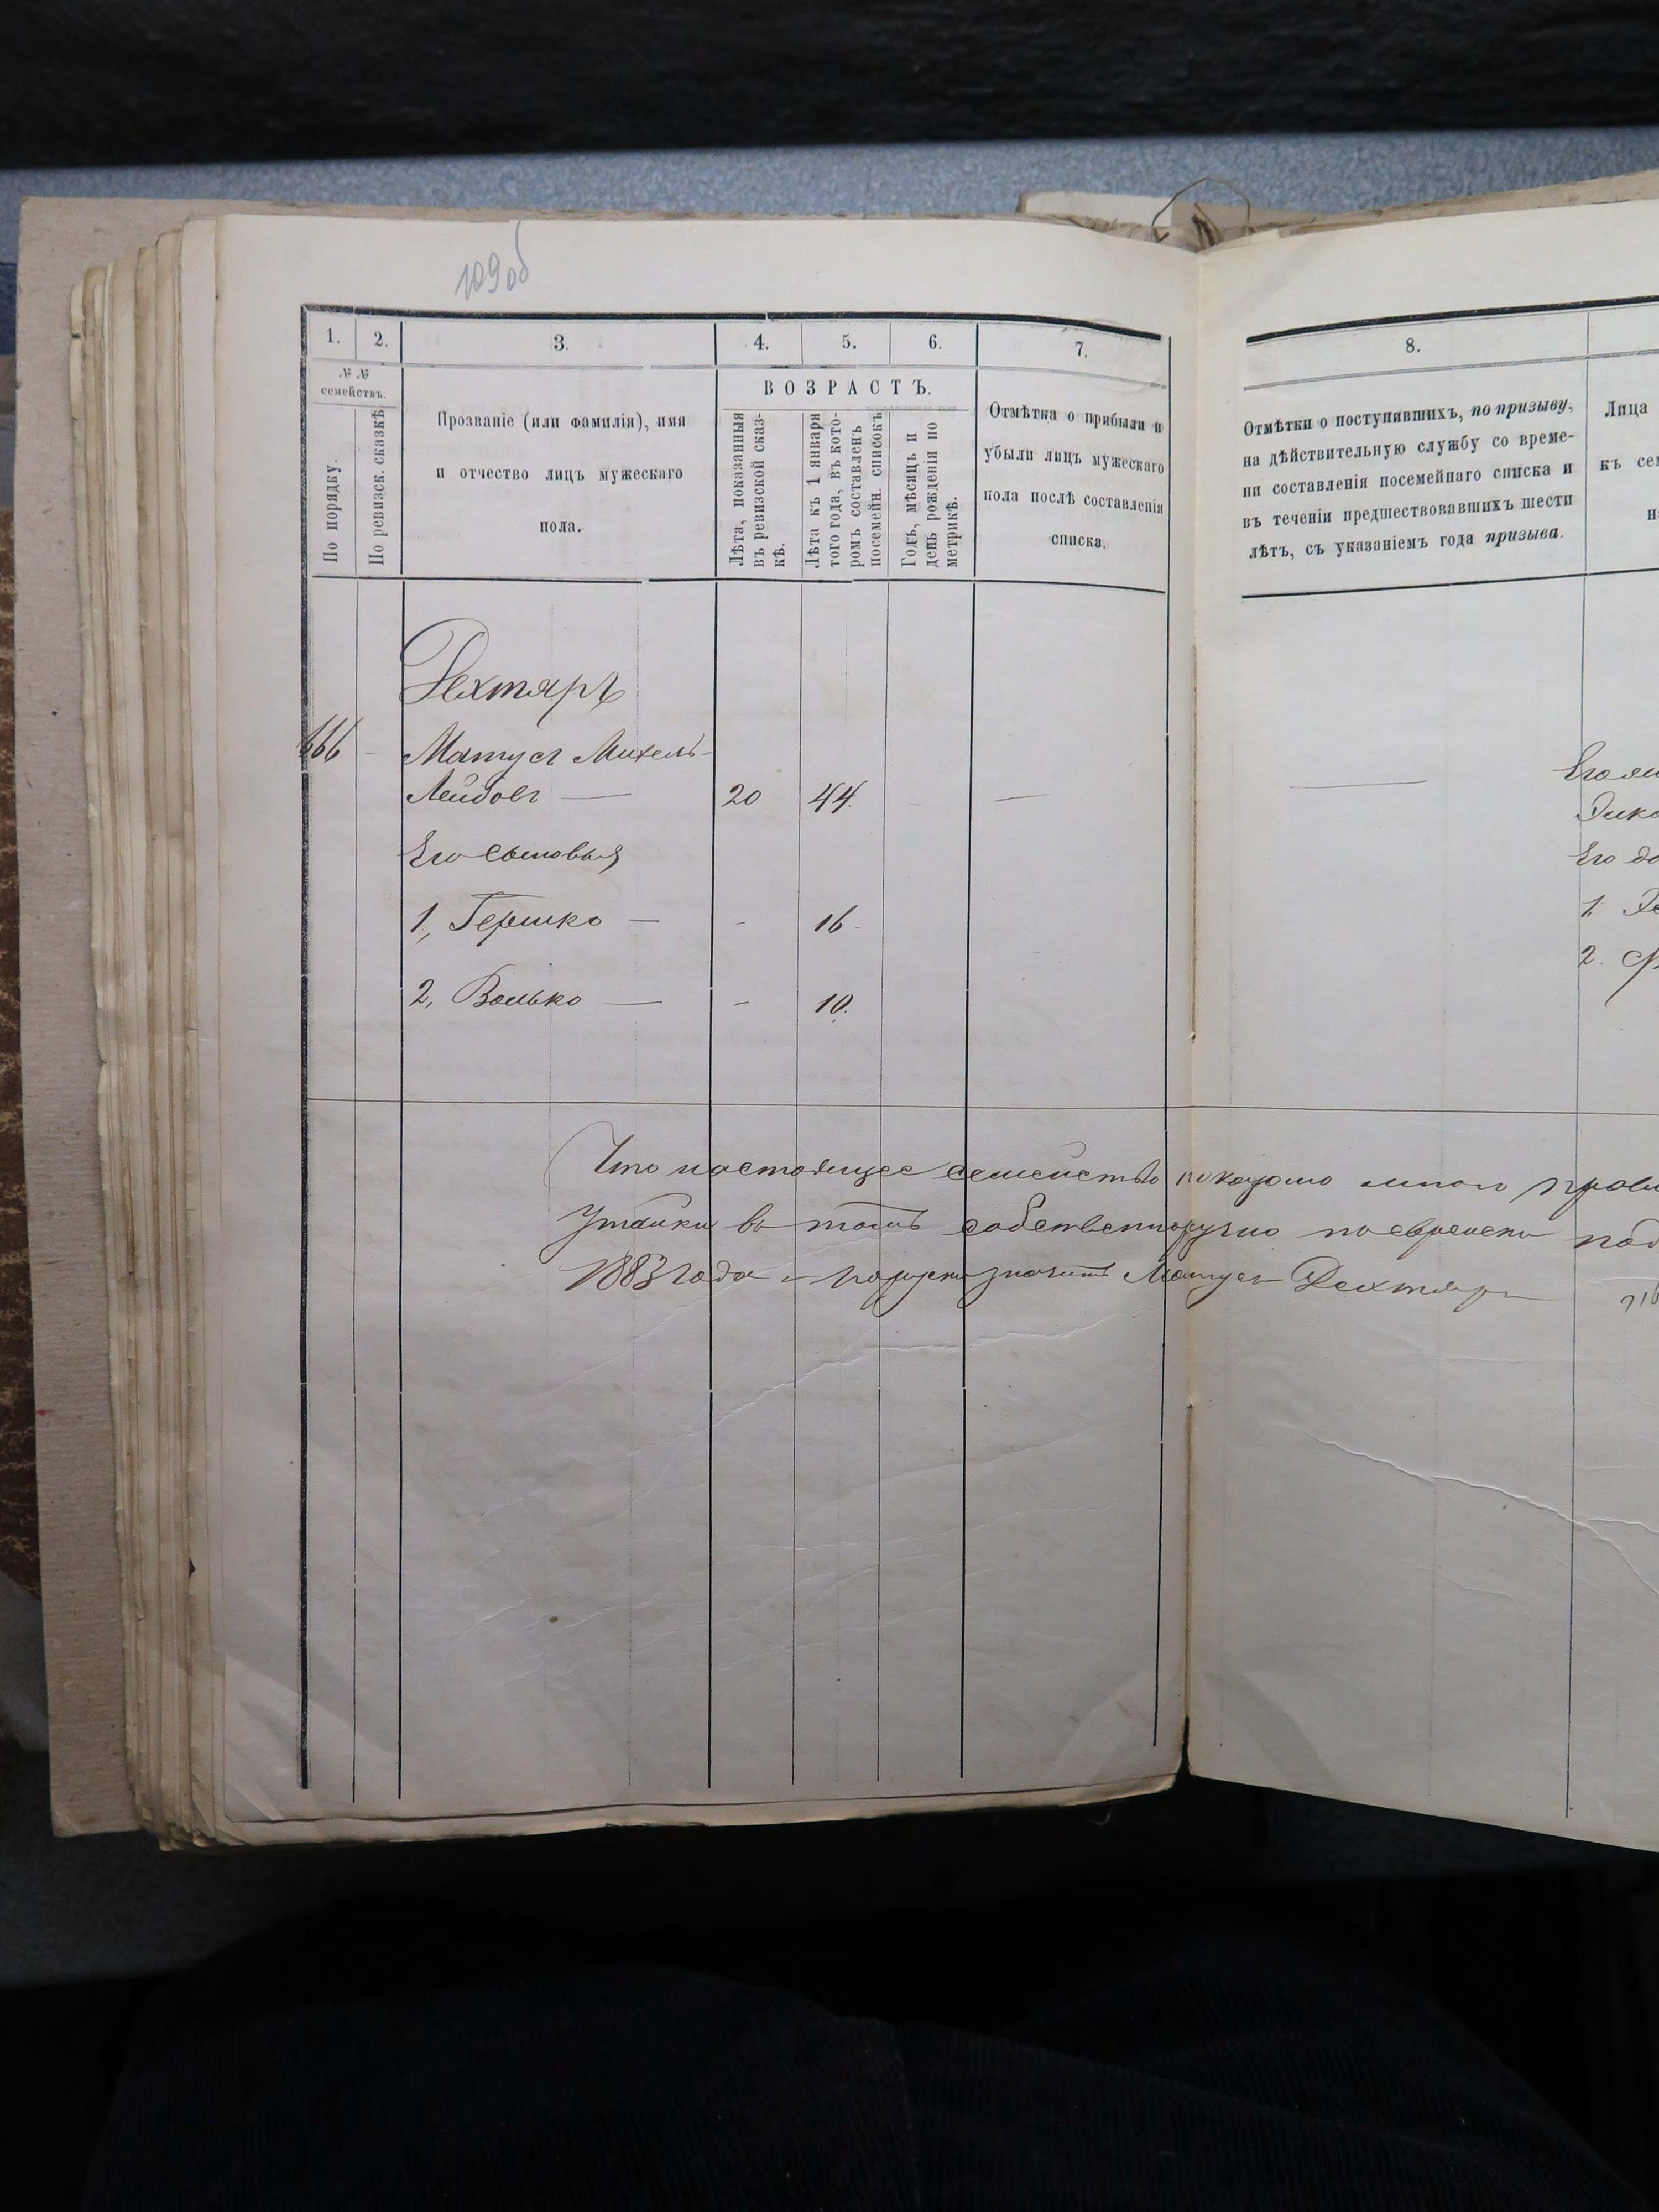 109 об
1.
2.
3.
4.
5.
6.
7.
№ №
семействъ.
По порядку.
По ревизск. сказкѣ
Прозваніе (или фамилія), имя
и отчество лицъ мужескаго
пола.
ВОЗРАСТЪ.
Лѣта, показанныя
въ ревизской сказ-
кѣ.
Лѣта къ 1 января
того года, въ кото-
ромъ составленъ
посемейн. списокъ
Годъ, мѣсяцъ и
день рожденія по
метрикѣ.
Отмѣтка о прибыли и
убыли лицъ мужескаго
пола послѣ составленія
списка.
Дехтяръ
666 - Матусъ Михель-
Лейбовъ — 20 44. —
Его сыновья
1, Гершко — - 16 -
2, Волько — - 10.
8.
Отмѣтки о поступившихъ, по призыву,
на дѣйствительную службу со време-
ни составленія посемейнаго списка и
въ теченіи предшествовавшихъ шести
лѣтъ, съ указаніемъ года призыва.
Лица
къ сем
на
—
Его
Его до
1.
2.
Что настоящее семейство показано мною
утайки въ томъ собственноручно по еврейски под
1883 года Матусъ Дехтяръ